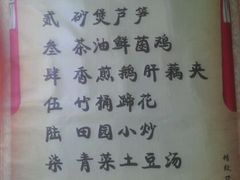 贰 砂煲芦笋
叁 茶油鲜菌鸡
肆 香煎鹅肝藕夹
伍 竹桶蹄花
陆 田园小炒
柒 青菜土豆汤